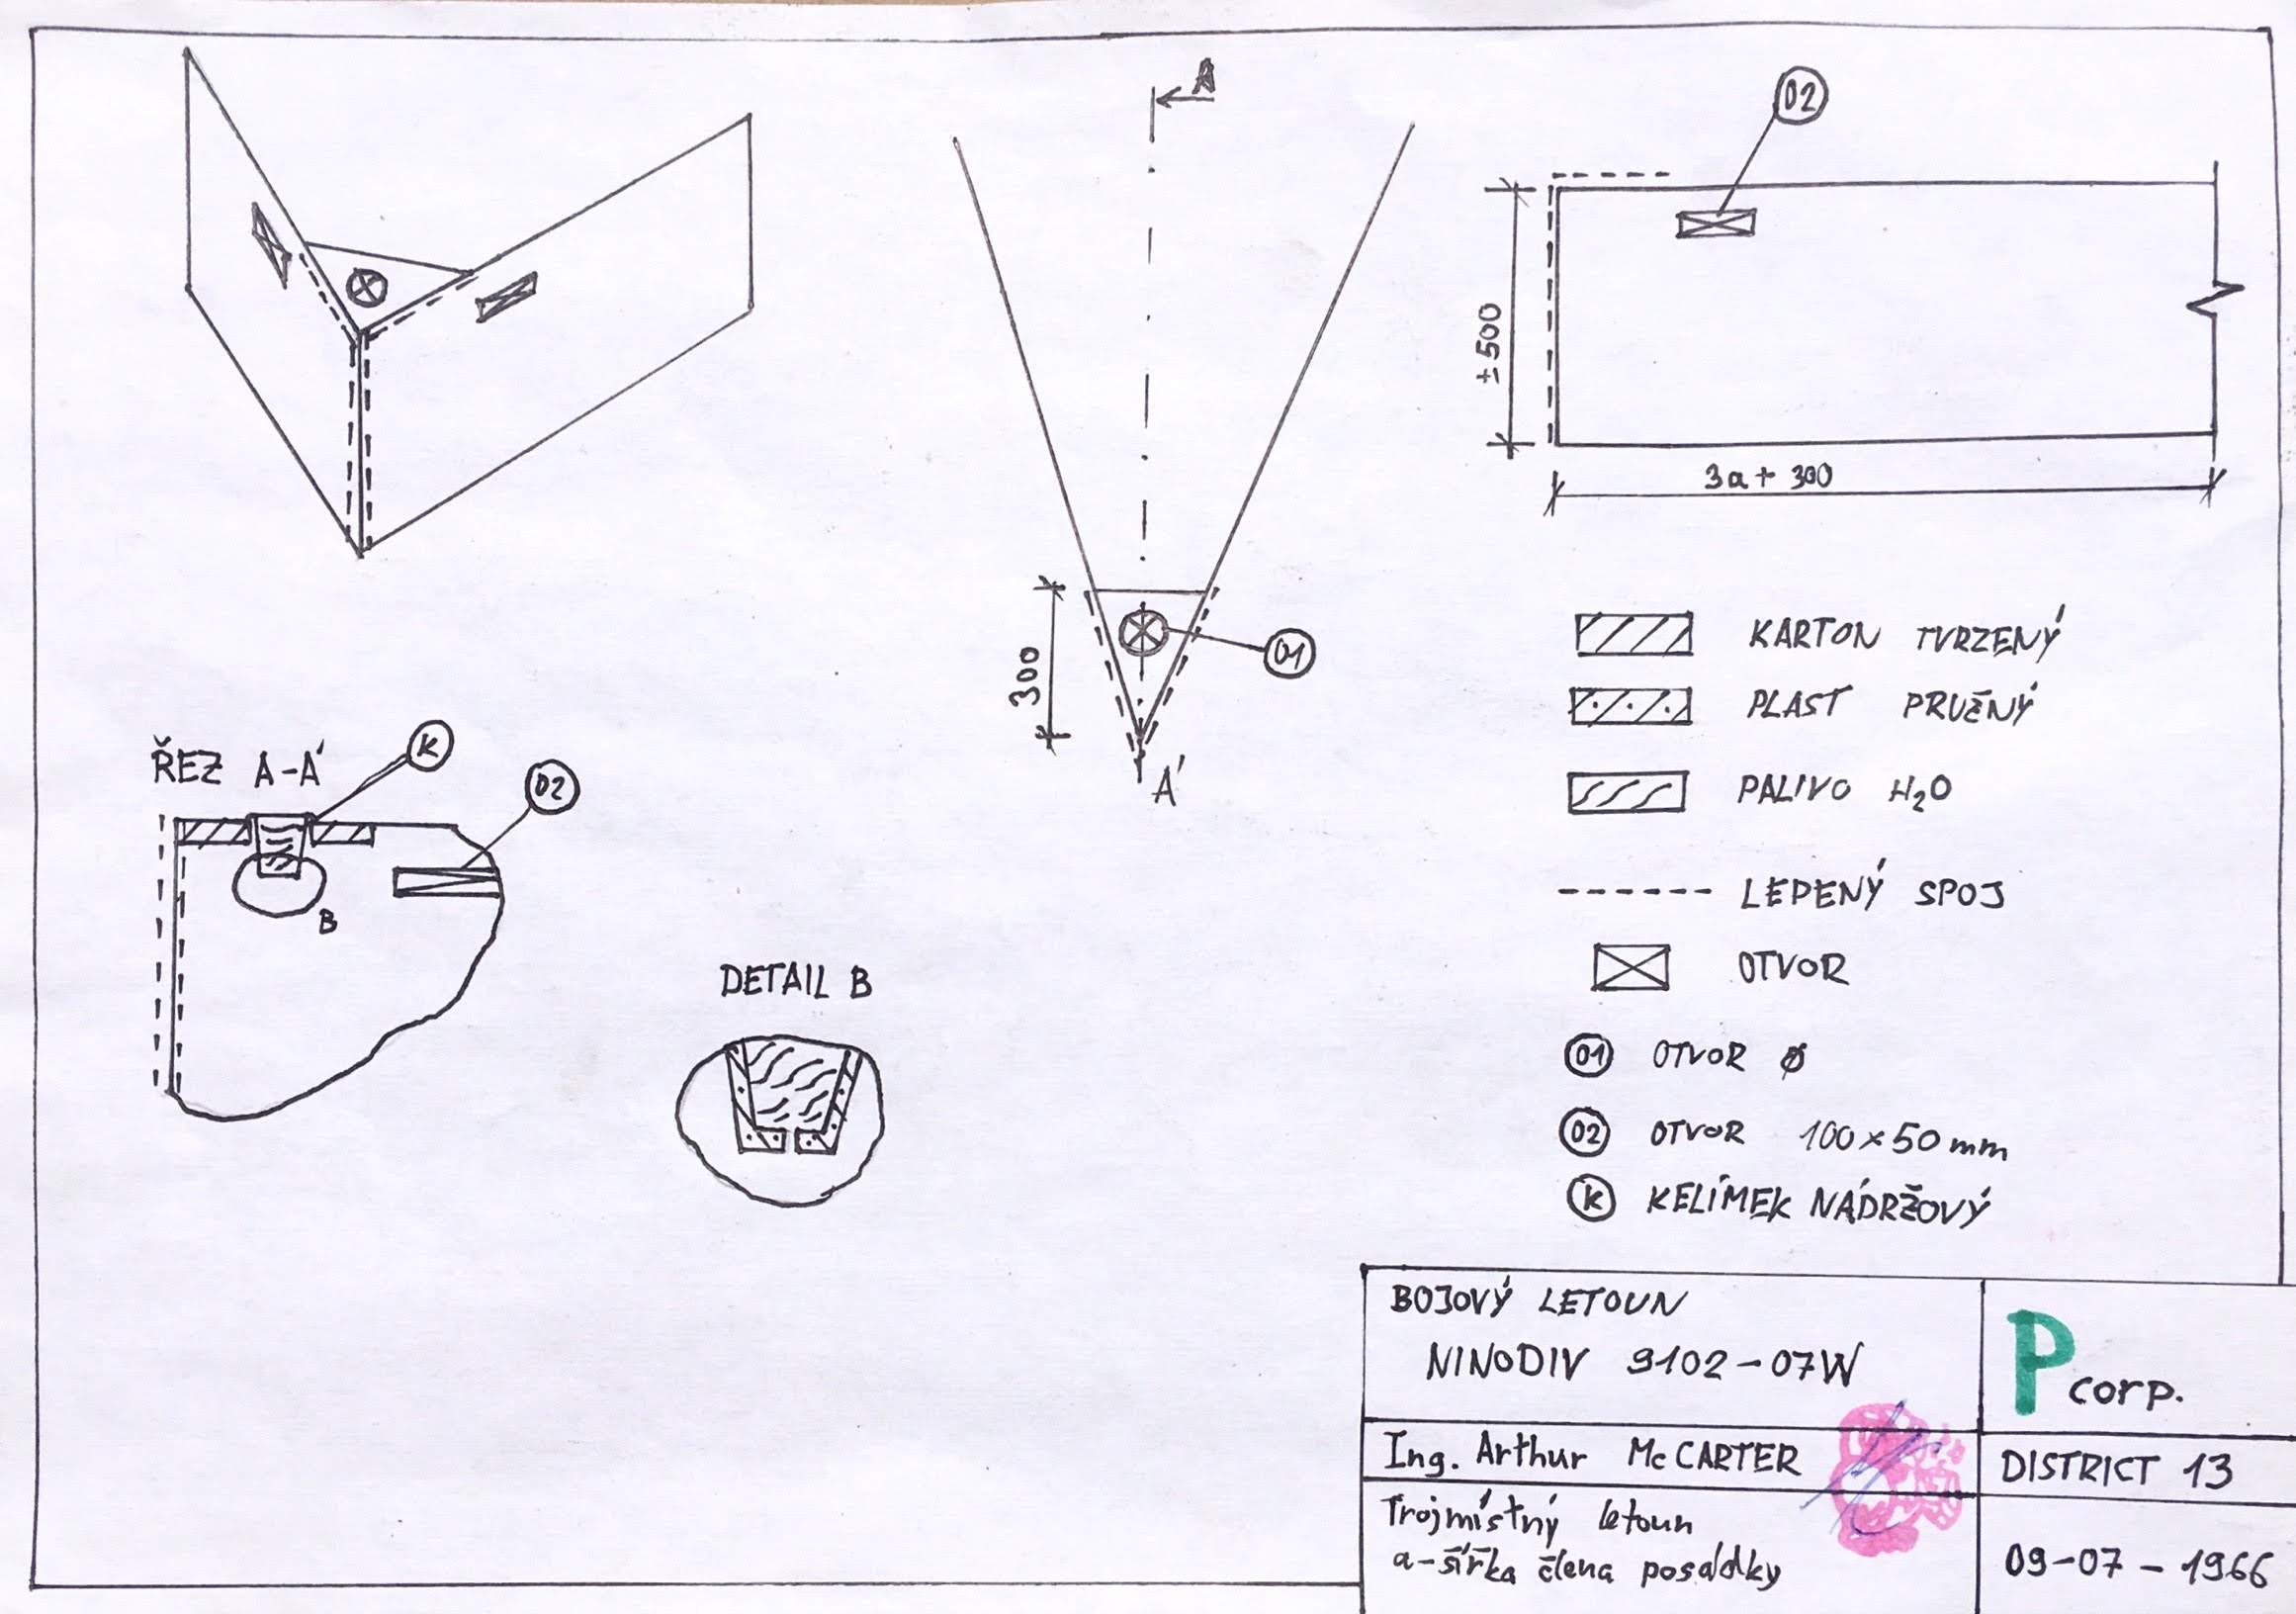 A
02
± 500
3a + 300
300
01
A'
KARTON TVRZENÝ
PLAST PRUŽNÝ
PALIVO H₂O
LEPENÝ SPOJ
OTVOR
01 OTVOR Ø
02 OTVOR 100×50 mm
K KELÍMEK NÁDRŽOVÝ
ŘEZ A-A'
K
02
B
DETAIL B
BOJOVÝ LETOUN
NINODIV 9102-07W
P corp.
Ing. Arthur McCARTER
DISTRICT 13
Trojmístný letoun
a-šířka člena posádky
09-07-1966